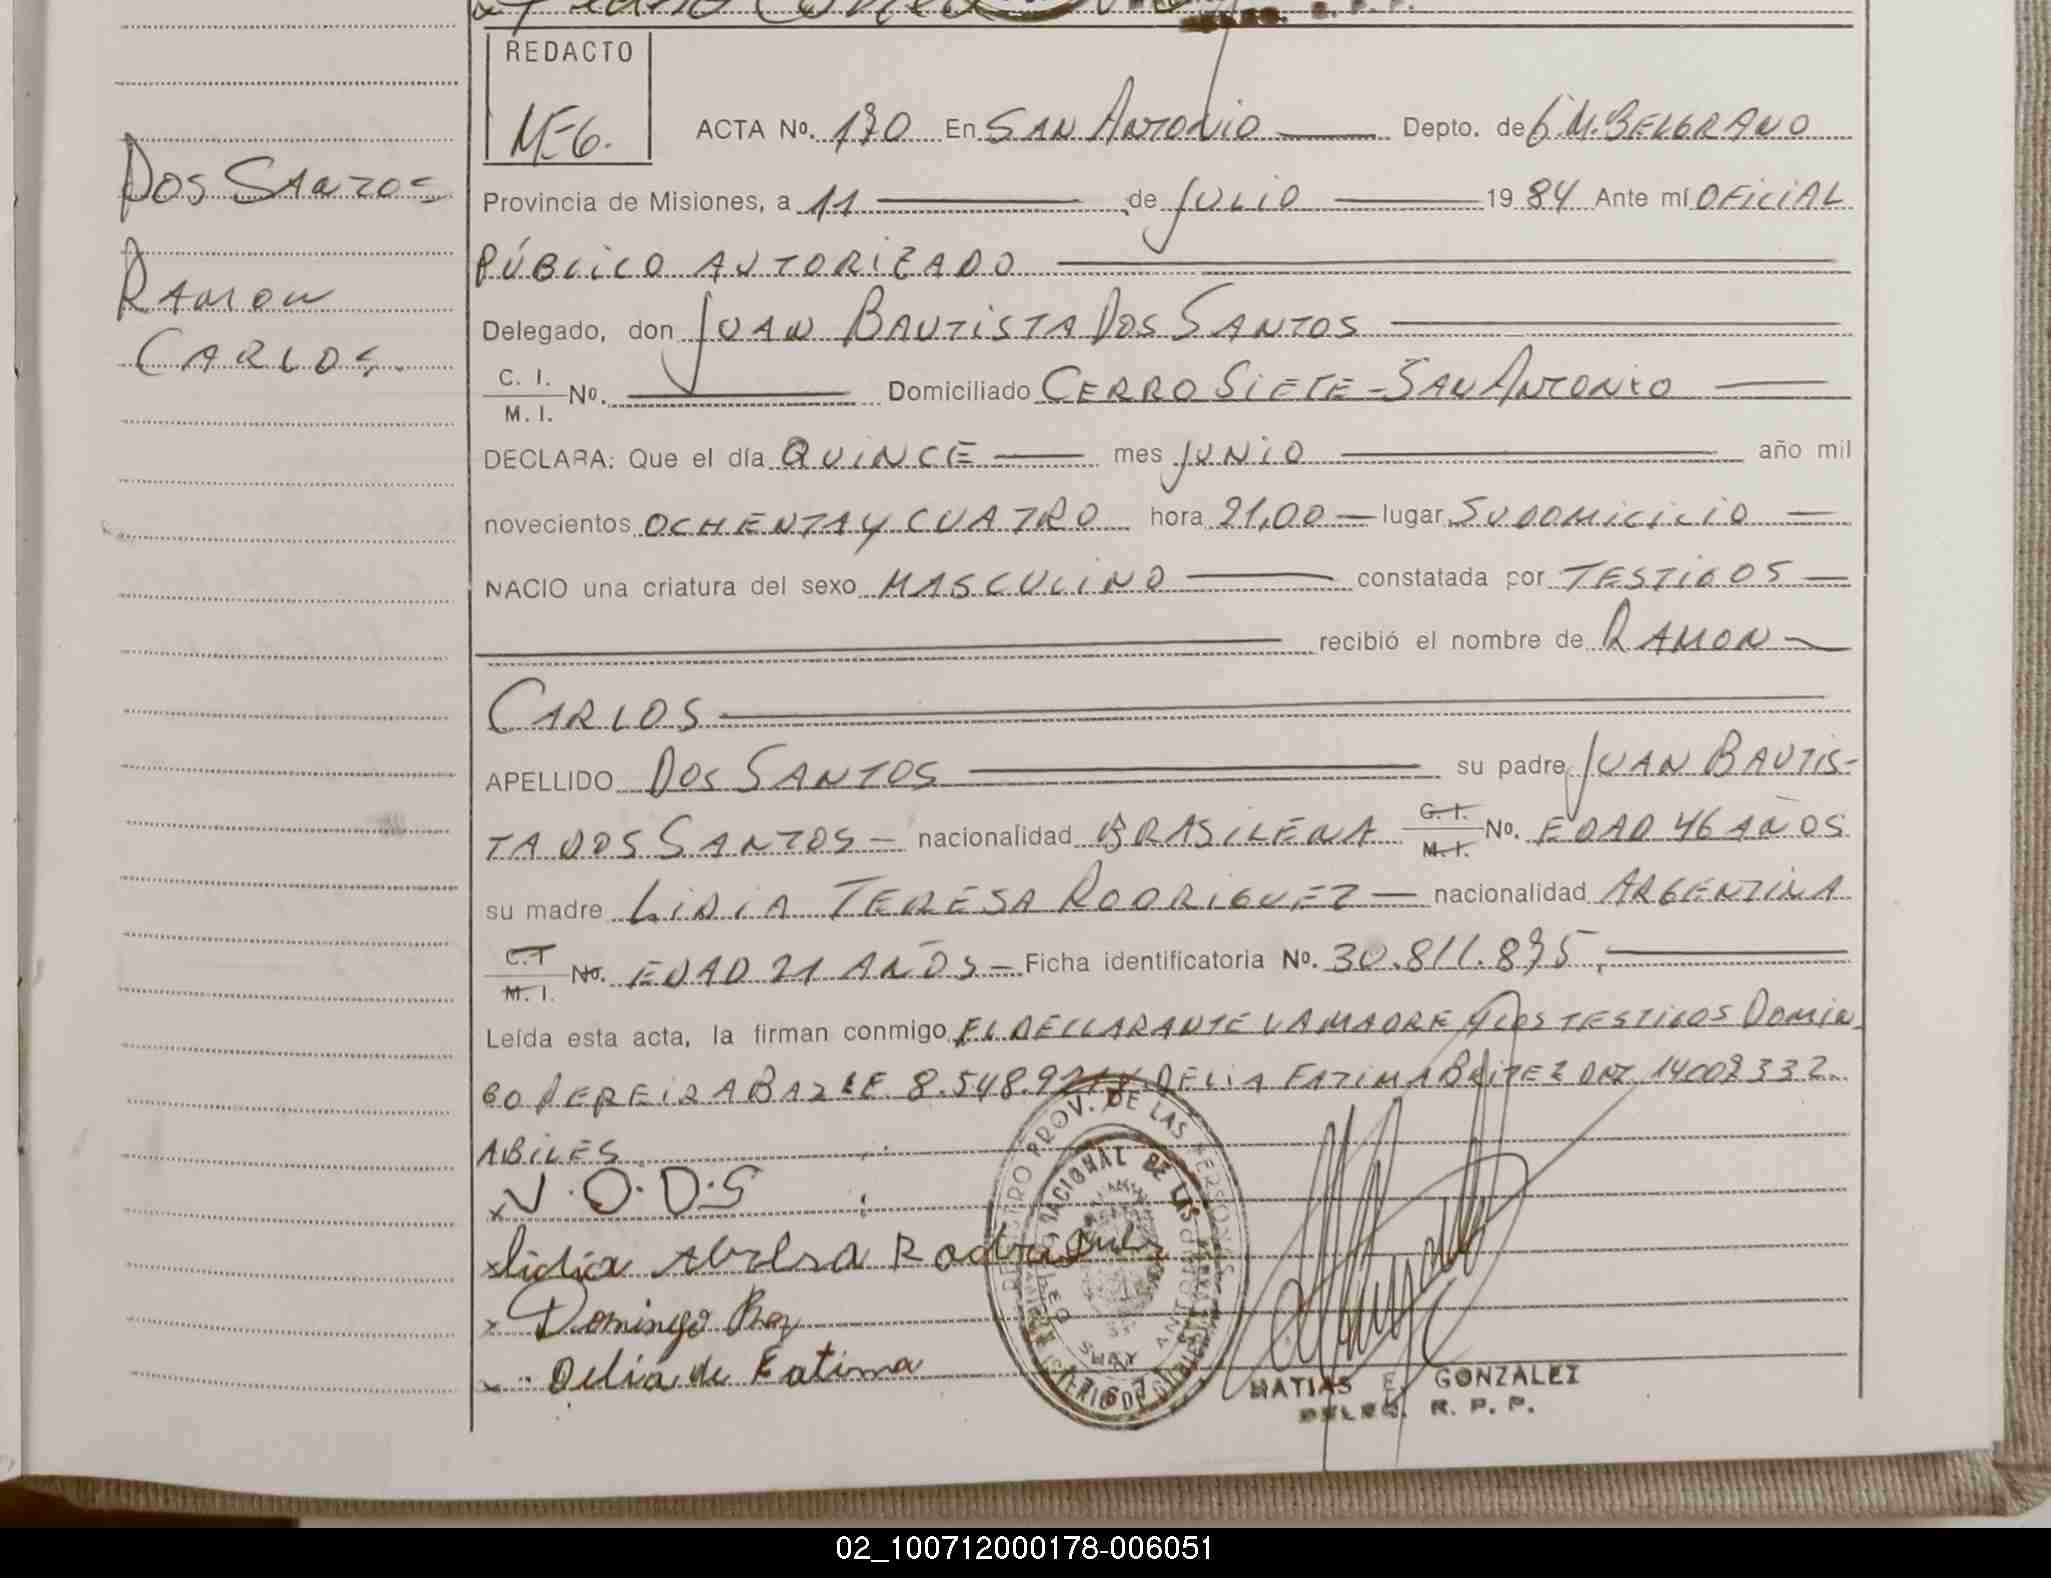 REDACTO
MEG.
ACTA No. 170 En SAN ANTONIO Depto. de G.M. BELGRANO
DOS SANTOS
RAMON
CARLOS.
Provincia de Misiones, a 11 de JULIO 1984 Ante mí OFICIAL
PÚBLICO AUTORIZADO
Delegado, don JUAN BAUTISTA DOS SANTOS
C. I.
M. I. No. Domiciliado CERRO SIETE - SAN ANTONIO
DECLARA: Que el día QUINCE mes JUNIO año mil
novecientos OCHENTA Y CUATRO hora 21,00 lugar SU DOMICILIO
NACIO una criatura del sexo MASCULINO constatada por TESTIGOS
recibió el nombre de RAMON
CARLOS
APELLIDO DOS SANTOS su padre JUAN BAUTIS-
TA DOS SANTOS - nacionalidad BRASILEÑA C. I. M. I. No. EDAD 46 AÑOS
su madre LIDIA TERESA RODRIGUEZ - nacionalidad ARGENTINA
C. I. M. I. No. EDAD 21 AÑOS - Ficha identificatoria No. 30.811.875.
Leída esta acta, la firman conmigo EL DECLARANTE LA MADRE Y LOS TESTIGOS DOMIN
GO PEREIRA BAZ LE 8.548.921 Y DELIA FATIMA BEITEZ DNI 14009332
ABILES
x J.O.D.S
x Lidia Teresa Rodriguez
x Domingo Baz
x Delia de Fatima
REGISTRO PROV. DE LAS PERSONAS
MATIAS E. GONZALEZ
DELEG. R. P. P.
02_100712000178-006051